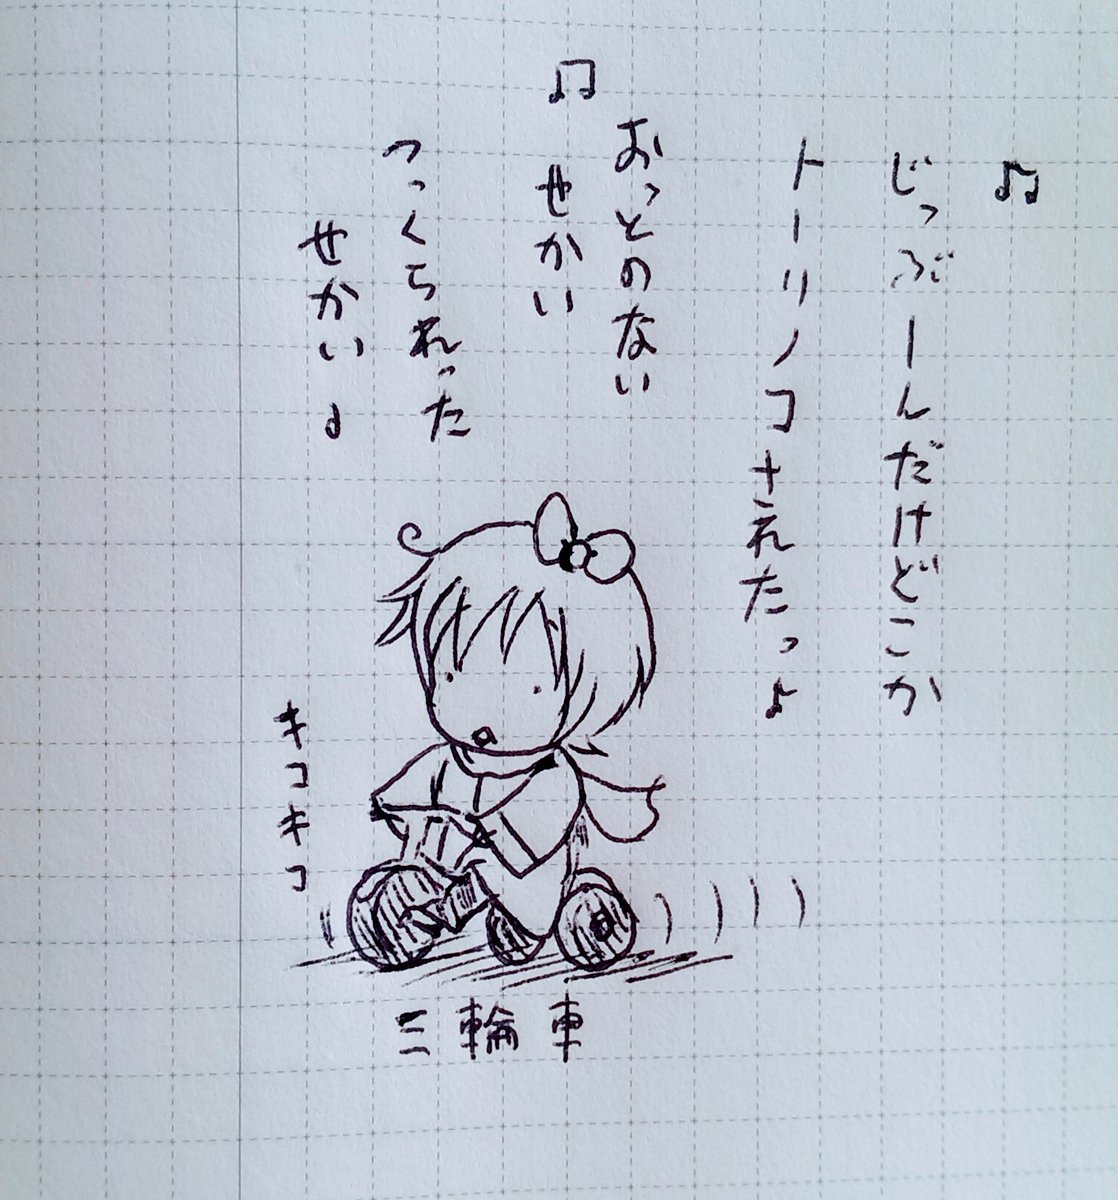 ♫
じっぶーんだけどこか
トーリノコされたっよ
おっとのない
せかい
♫
つっくられった
せかい♪
キコキコ
三輪車